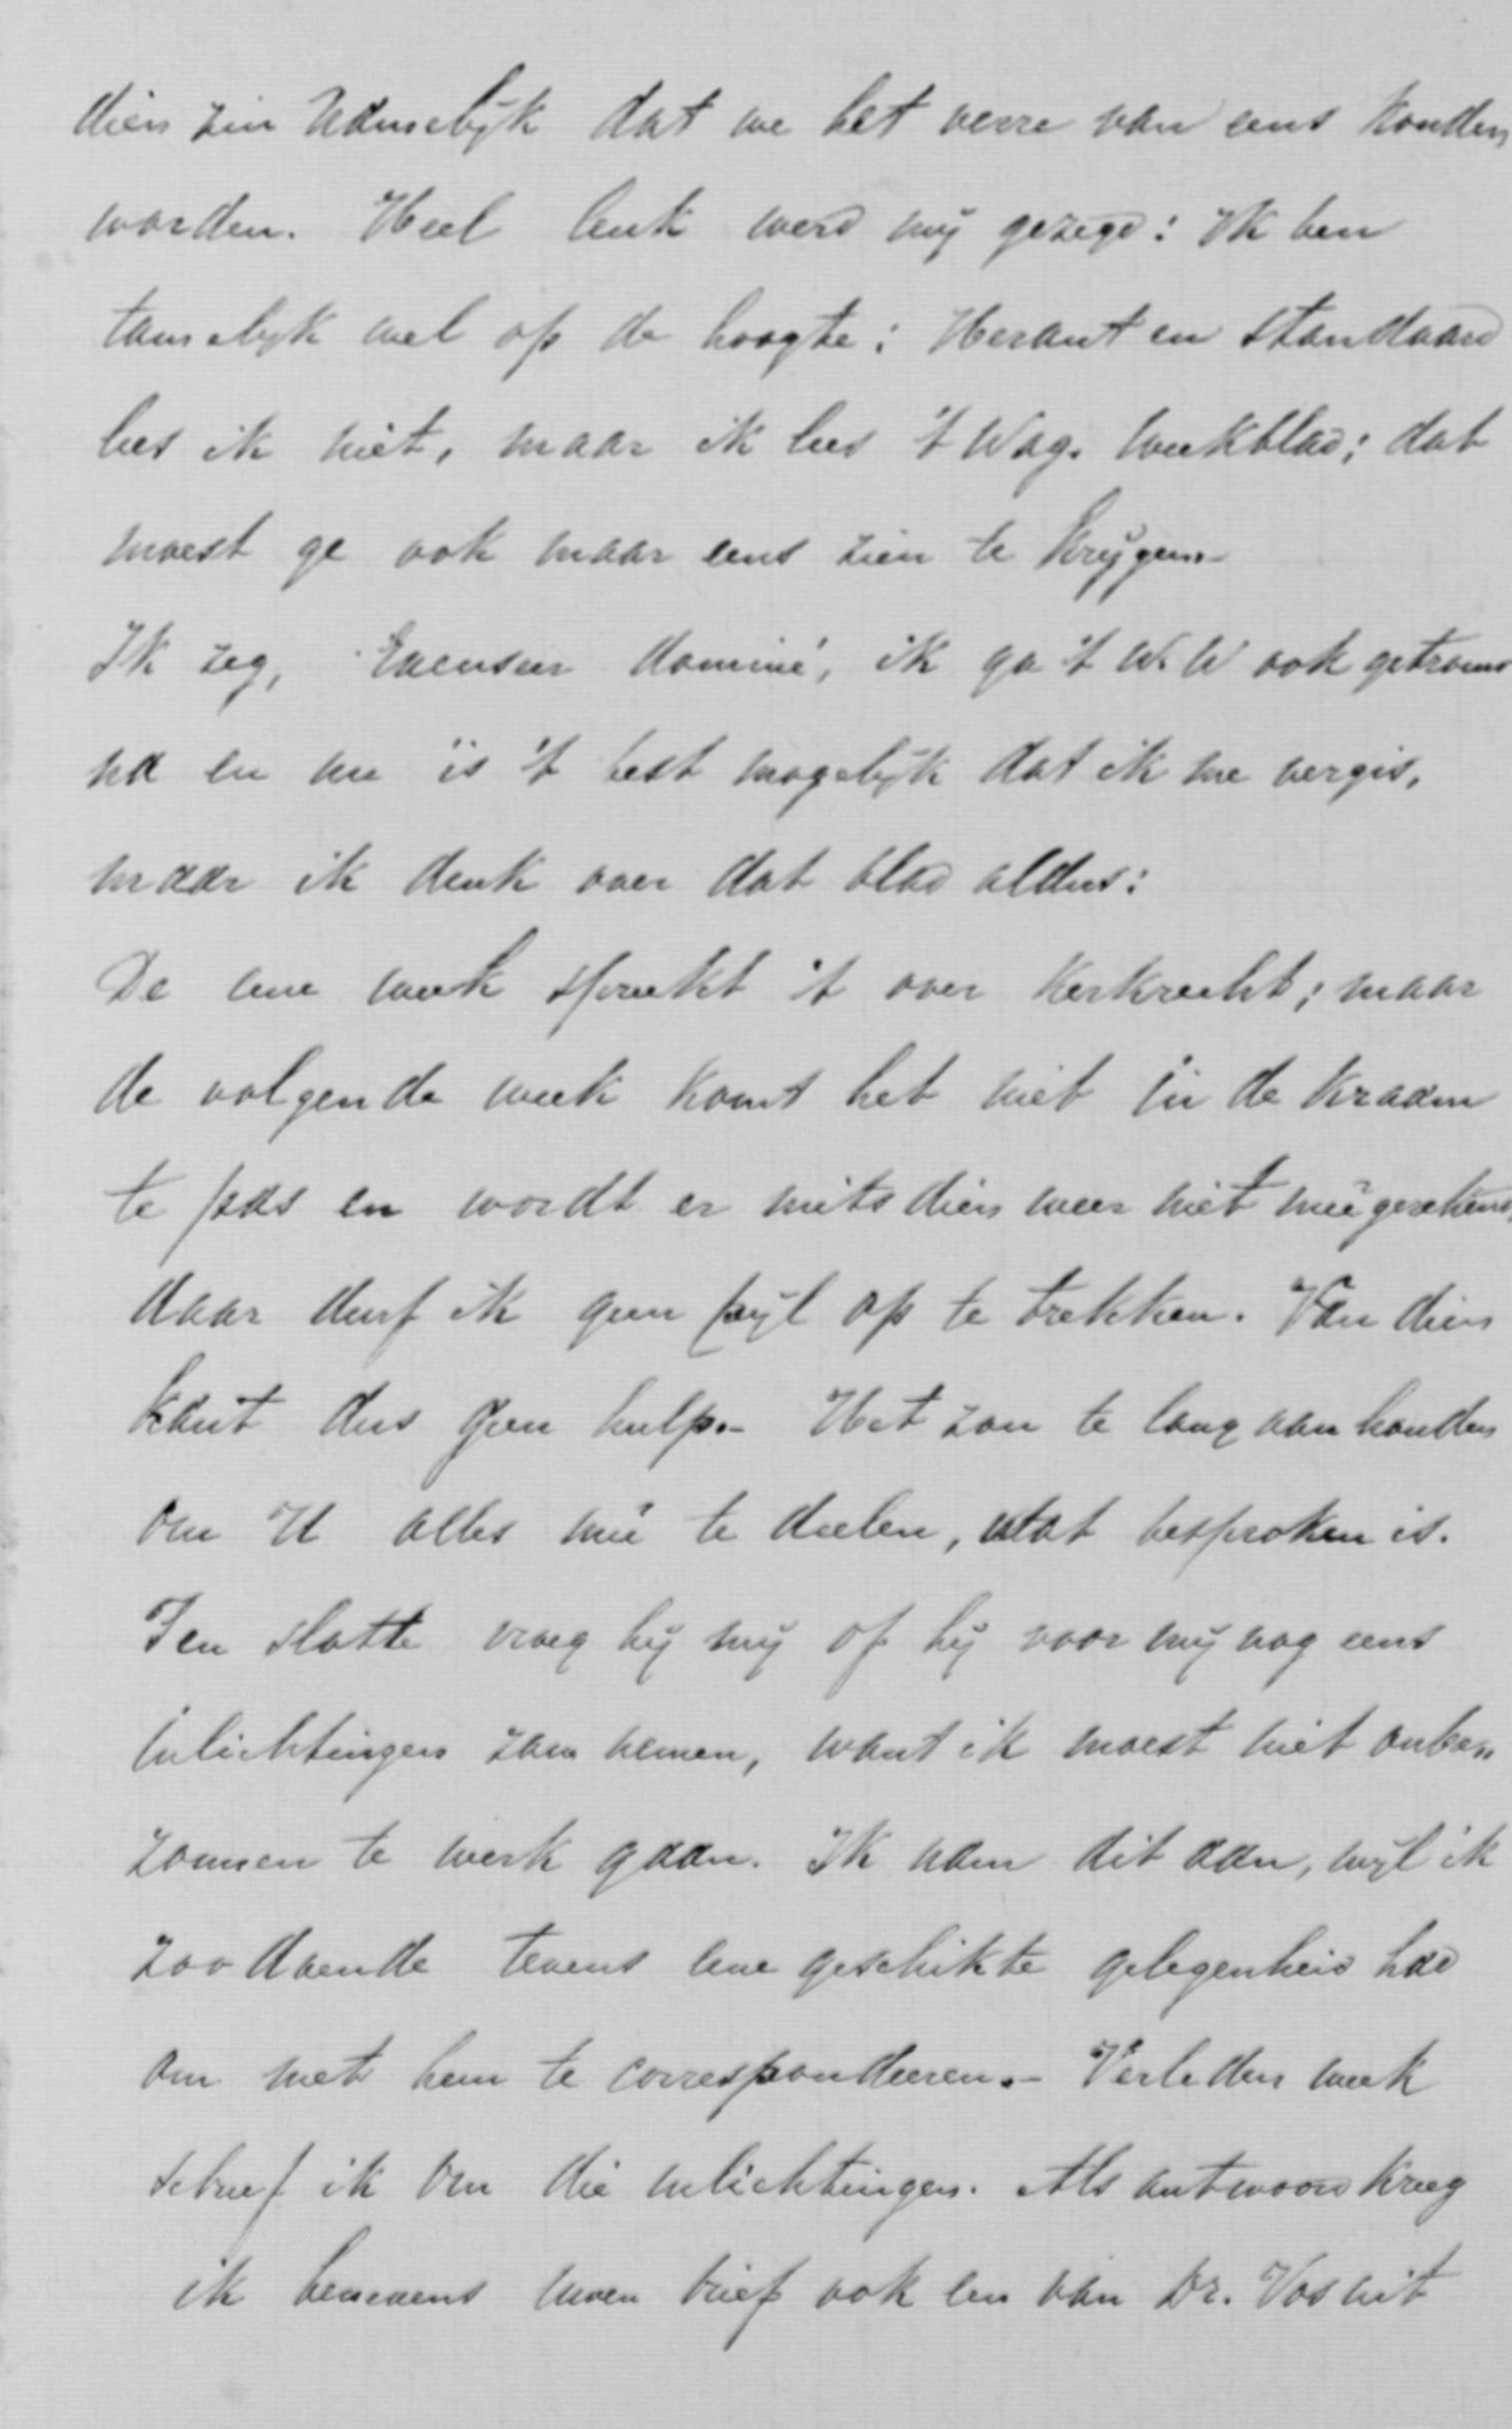 dien zin namelijk dat we het verre van eens konden
worden. Heel leuk werd mij gezegd: Ik ben
tamelijk wel op de hoogte: Heraut en Standaard
lees ik niet, maar ik lees 't Wag. Weekblad; dat
moest ge ook maar eens zien te krijgen.-
Ik zeg, Excuseer dominé, ik ga 't W.W ook getrouw
na en nu is 't best mogelijk dat ik me vergis,
maar ik denk over dat blad aldus:
De eene week spreekt 't over Kerkrecht; maar
de volgende week komt het niet in de kraam
te pas en wordt er mitsdien weer niet meê gerekend,
daar durf ik geen pijl op te trekken. Van dien
kant dus geen hulp.- Het zou te lang aanhouden
om U alles meê te deelen, wat besproken is.
Ten slotte vroeg hij mij of hij voor mij nog eens
inlichtingen zou nemen, want ik moest niet onbe„
zonnen te werk gaan. Ik nam dit aan, wijl ik
zoodoende tevens eene geschikte gelegenheid had
om met hem te correspondeeren.- Verleden week
schreef ik om die inlichtingen. Als antwoord kreeg
ik benevens uwen brief ook een van Dr. Vos uit